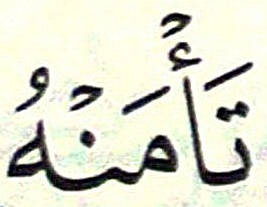 تَأۡمَنۡهُ